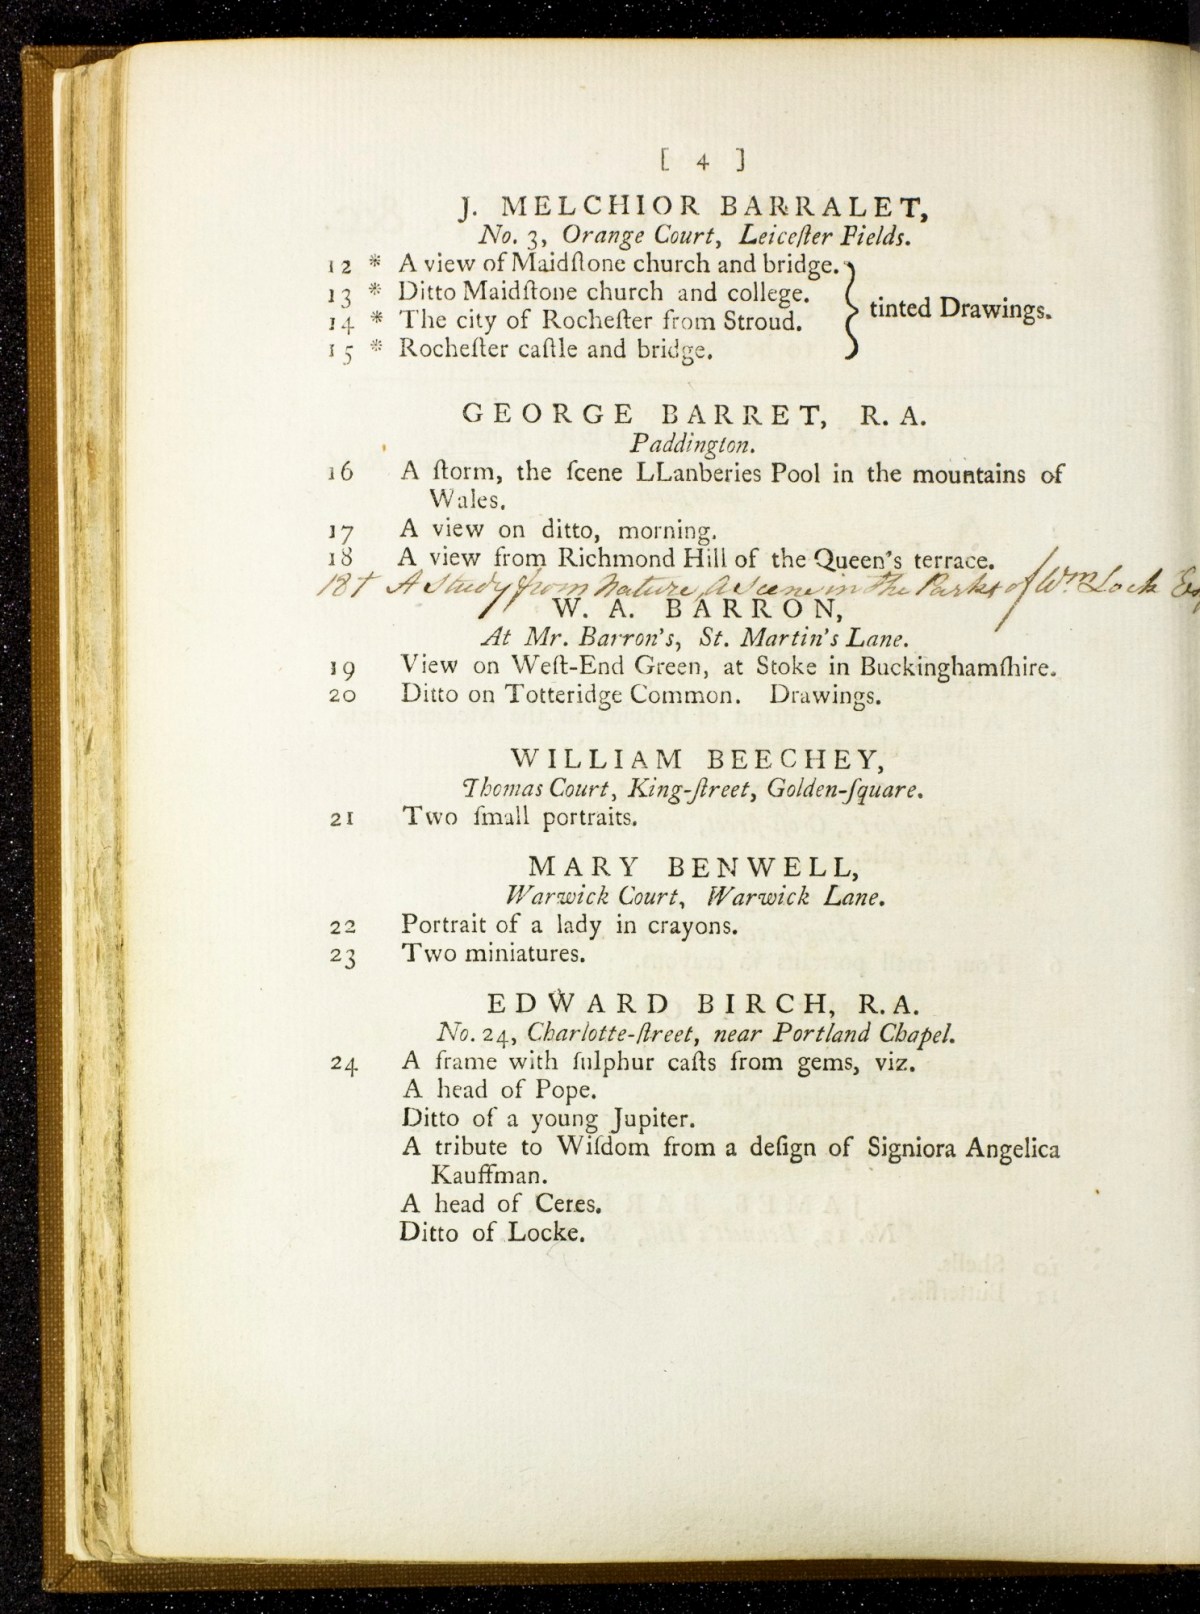 [ 4 ]
J. MELCHIOR BARRALET,
No. 3, Orange Court, Leiceſter Fields.
12 * A view of Maidſtone church and bridge.
13 * Ditto Maidſtone church and college.
14 * The city of Rocheſter from Stroud.
15 * Rocheſter caſtle and bridge.
tinted Drawings.
GEORGE BARRET, R. A.
Paddington.
16 A ſtorm, the ſcene LLanberies Pool in the mountains of
Wales.
17 A view on ditto, morning.
18 A view from Richmond Hill of the Queen's terrace.
18† A Study from Nature, a Scene in the Park of Wm Lock Es
W. A. BARRON,
At Mr. Barron's, St. Martin's Lane.
19 View on Weſt-End Green, at Stoke in Buckinghamſhire.
20 Ditto on Totteridge Common. Drawings.
WILLIAM BEECHEY,
Thomas Court, King-ſtreet, Golden-ſquare.
21 Two ſmall portraits.
MARY BENWELL,
Warwick Court, Warwick Lane.
22 Portrait of a lady in crayons.
23 Two miniatures.
EDWARD BIRCH, R. A.
No. 24, Charlotte-ſtreet, near Portland Chapel.
24 A frame with ſulphur caſts from gems, viz.
A head of Pope.
Ditto of a young Jupiter.
A tribute to Wiſdom from a deſign of Signiora Angelica
Kauffman.
A head of Ceres.
Ditto of Locke.